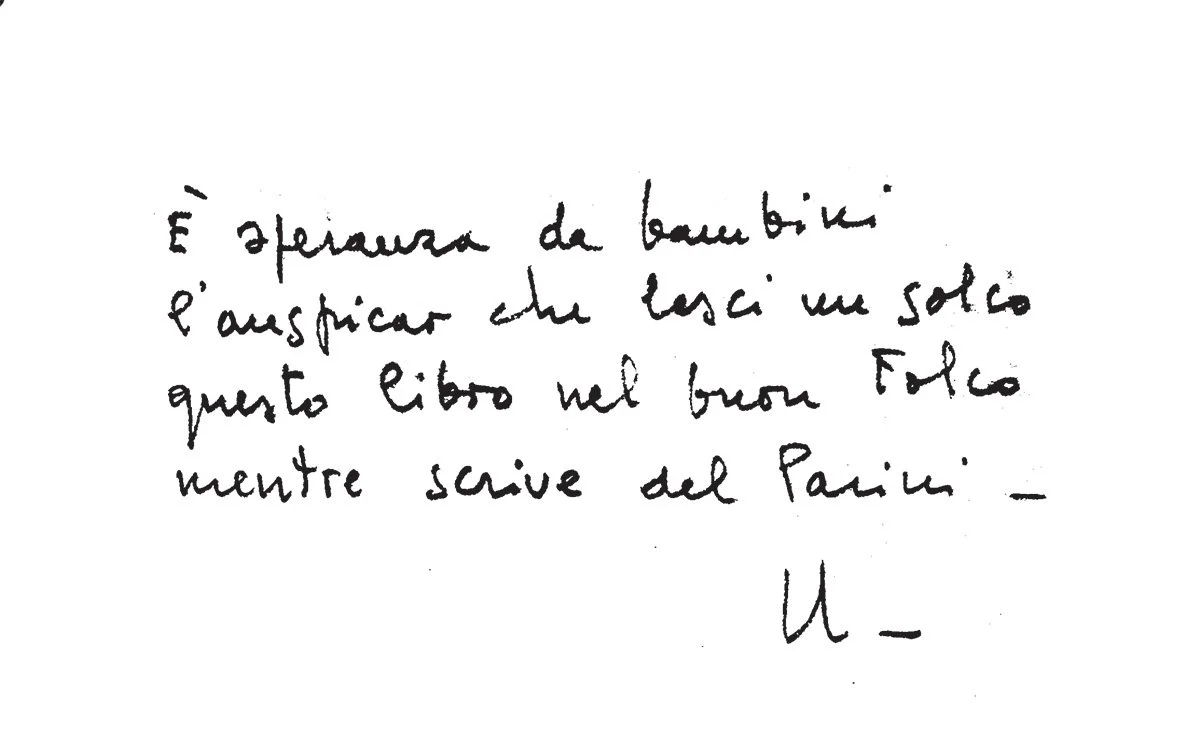 È speranza da bambini
l'auspicar che lasci un solco
questo libro nel buon Folco
mentre scrive del Parini –
U –